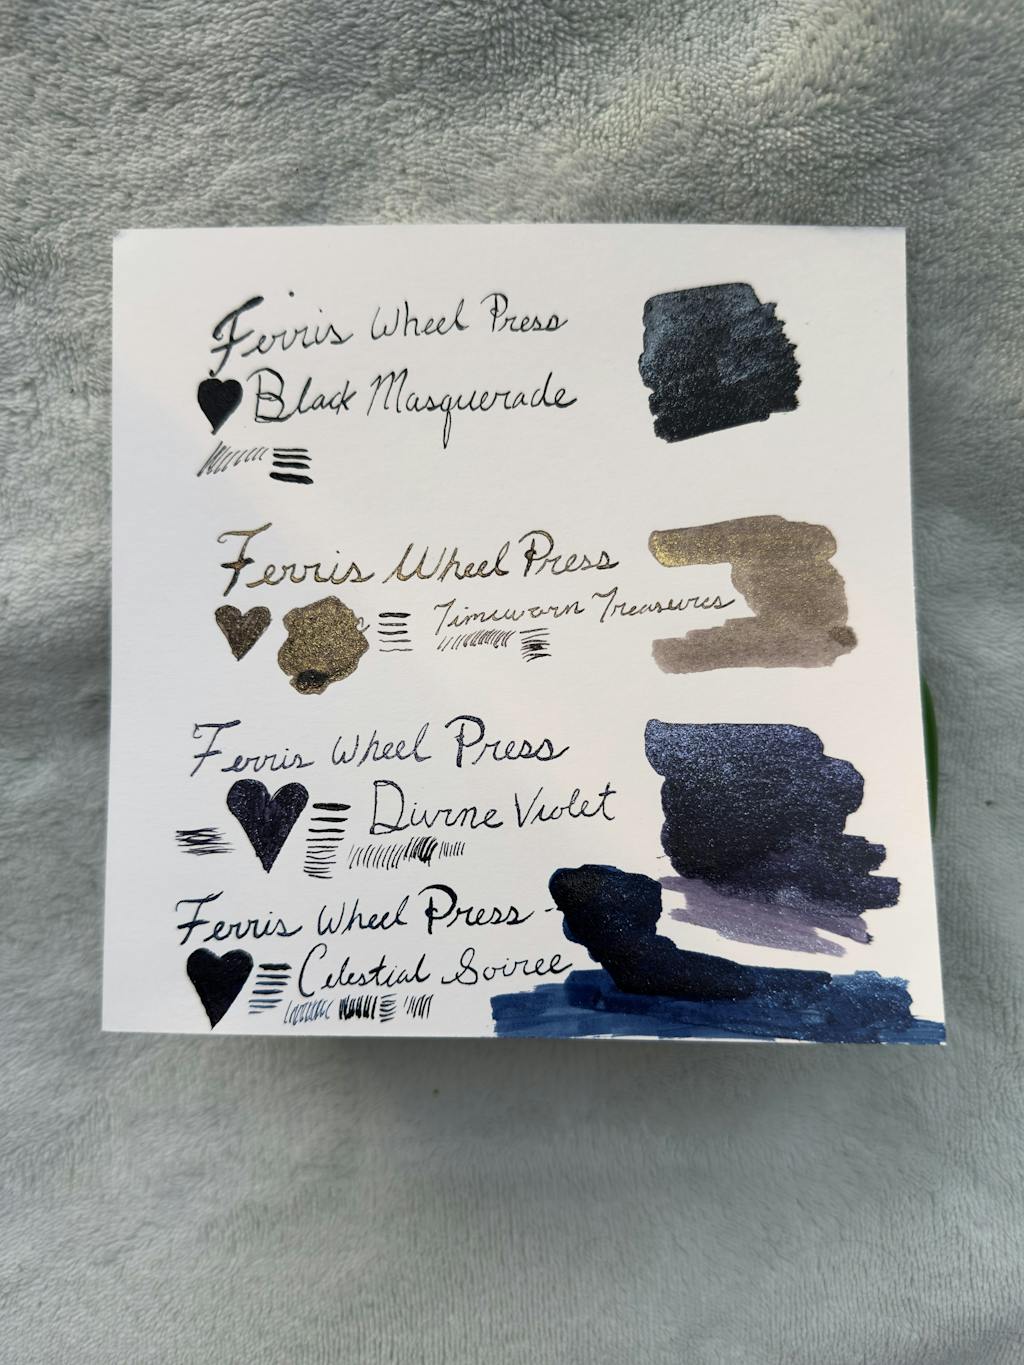 Ferris Wheel Press
Black Masquerade
Ferris Wheel Press
Timeworn Treasures
Ferris Wheel Press
Divine Violet
Ferris Wheel Press -
Celestial Soiree